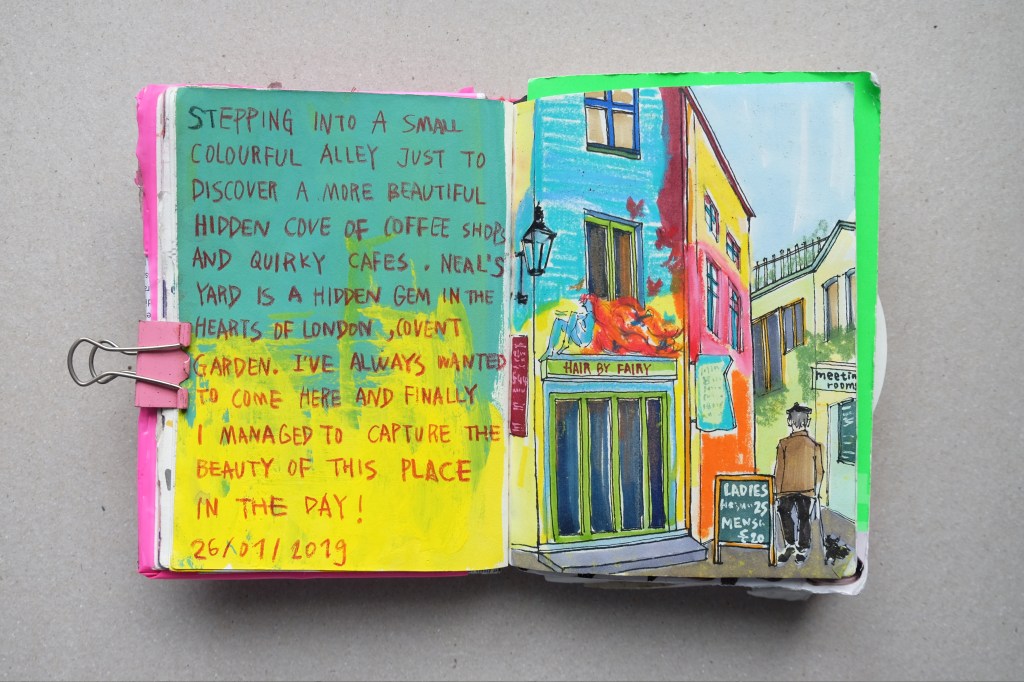 STEPPING INTO A SMALL
COLOURFUL ALLEY JUST TO
DISCOVER A MORE BEAUTIFUL
HIDDEN COVE OF COFFEE SHOPS
AND QUIRKY CAFES. NEAL'S
YARD IS A HIDDEN GEM IN THE
HEARTS OF LONDON, COVENT
GARDEN. I'VE ALWAYS WANTED
TO COME HERE AND FINALLY
I MANAGED TO CAPTURE THE
BEAUTY OF THIS PLACE
IN THE DAY!
26/01/2019
HAIR BY FAIRY
meetin
rooms
LADIES
25
MENS
£20